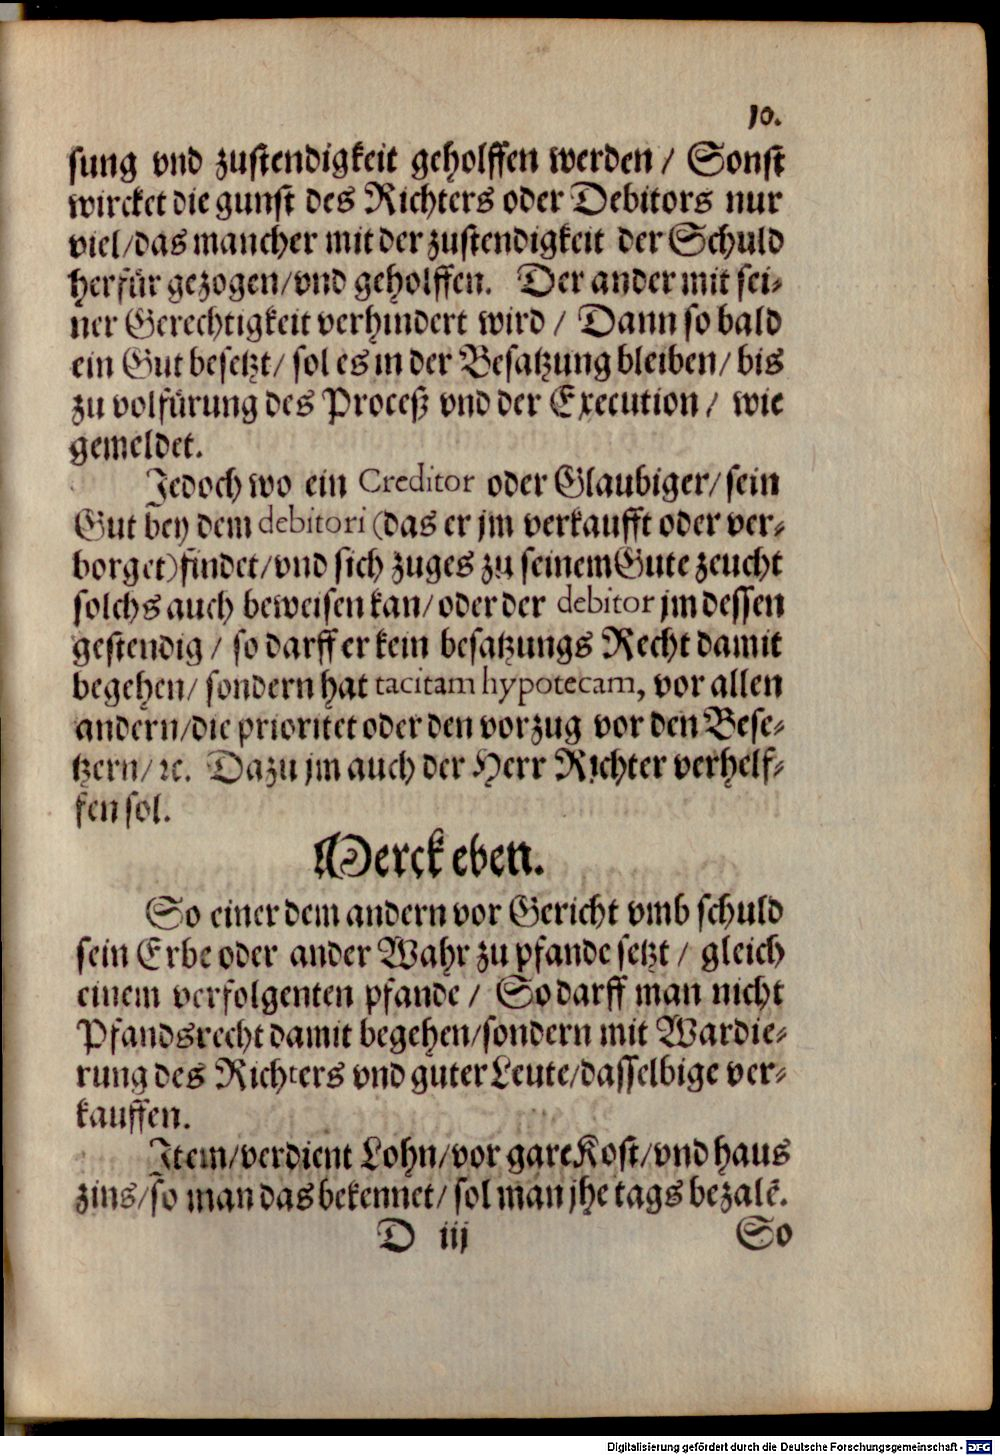 10.
sung vnd zustendigkeit geholffen werden / Sonst
wircket die gunst des Richters oder Debitors nur
viel/das mancher mit der zustendigkeit der Schuld
herfür gezogen/vnd geholffen. Der ander mit sei-
ner Gerechtigkeit verhindert wird / Dann so bald
ein Gut besetzt/ sol es in der Besatzung bleiben/ bis
zu volfürung des Proceß vnd der Execution / wie
gemeldet.
Jedoch wo ein Creditor oder Glaubiger/sein
Gut bey dem debitori (das er jm verkaufft oder ver-
borget)findet/vnd sich zuges zu seinem Gute zeucht
solchs auch beweisen kan/oder der debitor jm dessen
gestendig / so darff er kein besatzungs Recht damit
begehen/ sondern hat tacitam hypotecam, vor allen
andern/die prioritet oder den vorzug vor den Bese-
tzern/ ꝛc. Dazu jm auch der Herr Richter verhelf-
fen sol.
Merck eben.
So einer dem andern vor Gericht vmb schuld
sein Erbe oder ander Wahr zu pfande setzt / gleich
einem verfolgenten pfande / So darff man nicht
Pfandsrecht damit begehen/sondern mit Wardie-
rung des Richters vnd guter Leute/dasselbige ver-
kauffen.
Item/verdient Lohn/vor gare Kost/vnd haus
zins/so man das bekennet/ sol man jhe tags bezalē.
D iij So
Digitalisierung gefördert durch die Deutsche Forschungsgemeinschaft - DFG